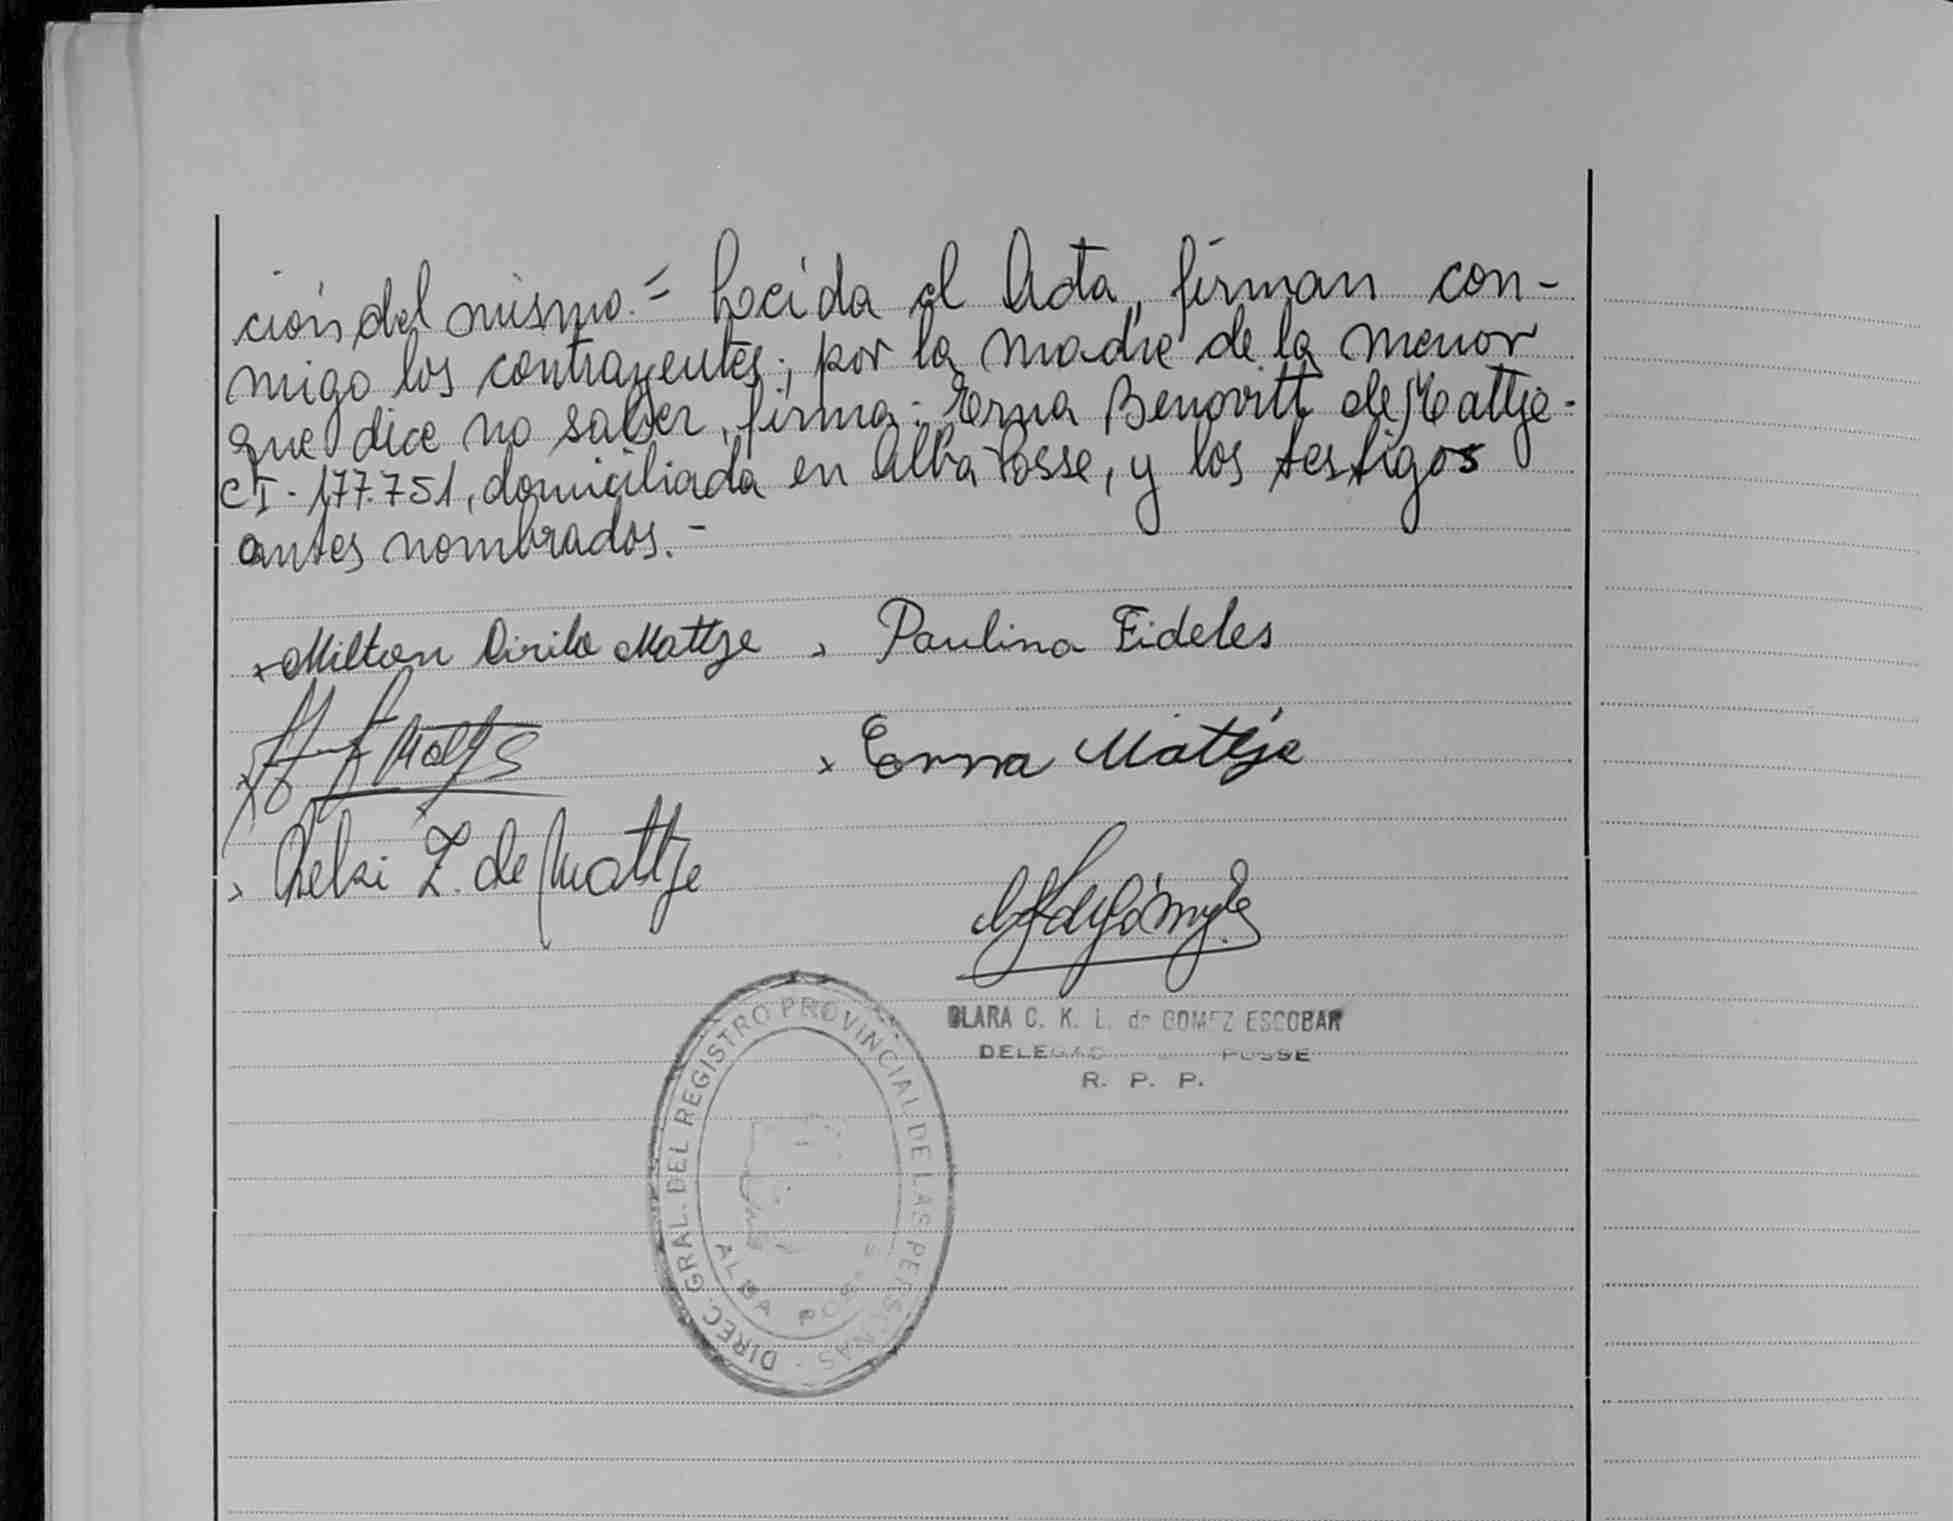 ción del mismo.= Leída el Acta, firman con-
migo los contrayentes; por la madre de la menor
que dice no saber, firma: Erna Benovitt de Mattje-
CI. 177.751, domiciliada en Alba Posse, y los testigos
antes nombrados.-
Milton Cirilo Mattje Paulina Fideles
Erna Mattje
Z. de Mattje
CLARA C. K. L. de GOMEZ ESCOBAR
POSSE
R. P. P.
DIREC. GRAL. DEL REGISTRO PROVINCIAL DE LAS PERSONAS
ALBA POSSE